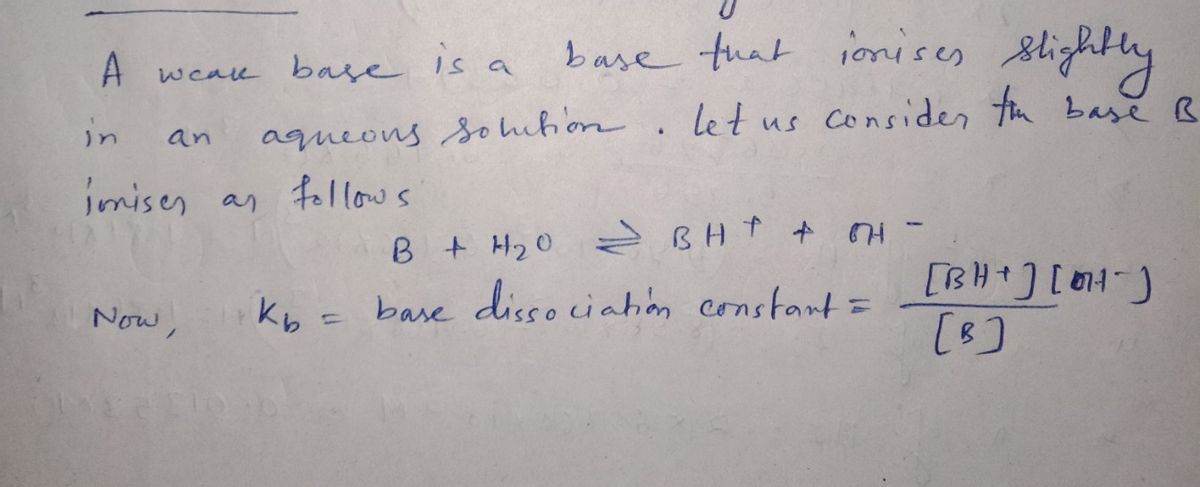 A weak base is a base that ionises slightly
in an aqueous solution. let us consider the base B
ionises as follows
B + H₂O ⇌ BH⁺ + OH⁻
Now, Kb = base dissociation constant = [BH+][OH-] / [B]